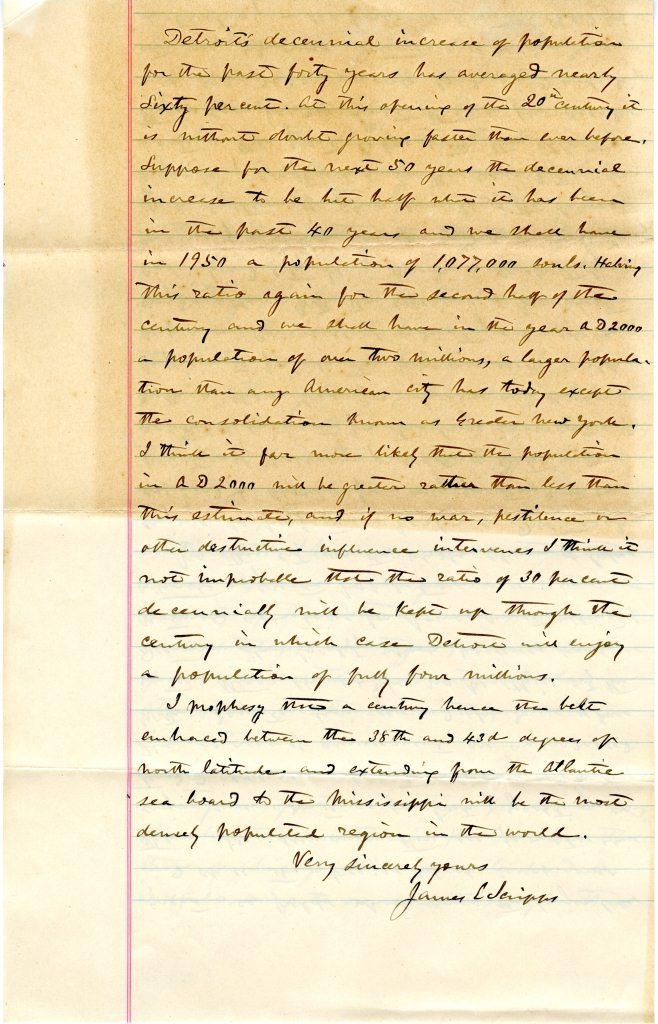 Detroit's decennial increase of population
for the past forty years has averaged nearly
Sixty per cent. At this opening of the 20th century it
is without doubt growing faster than ever before.
Suppose for the next 50 years the decennial
increase to be but half what it has been
in the past 40 years and we shall have
in 1950 a population of 1,077,000 souls. Halving
this ratio again for the second half of the
century and we shall have in the year A D 2000
a population of over two millions, a larger popula-
tion than any American city has today except
the consolidation known as Greater New York.
I think it far more likely that the population
in A D 2000 will be greater rather than less than
this estimate, and if no war, pestilence or
other destructive influence intervenes I think it
not improbable that the ratio of 30 per cent
decennially will be kept up through the
century in which case Detroit will enjoy
a population of fully four millions.
I prophesy that a century hence the belt
embraced between the 38th and 43d degrees of
north latitude and extending from the Atlantic
sea board to the Mississippi will be the most
densely populated region in the world.
Very sincerely yours
James E Scripps